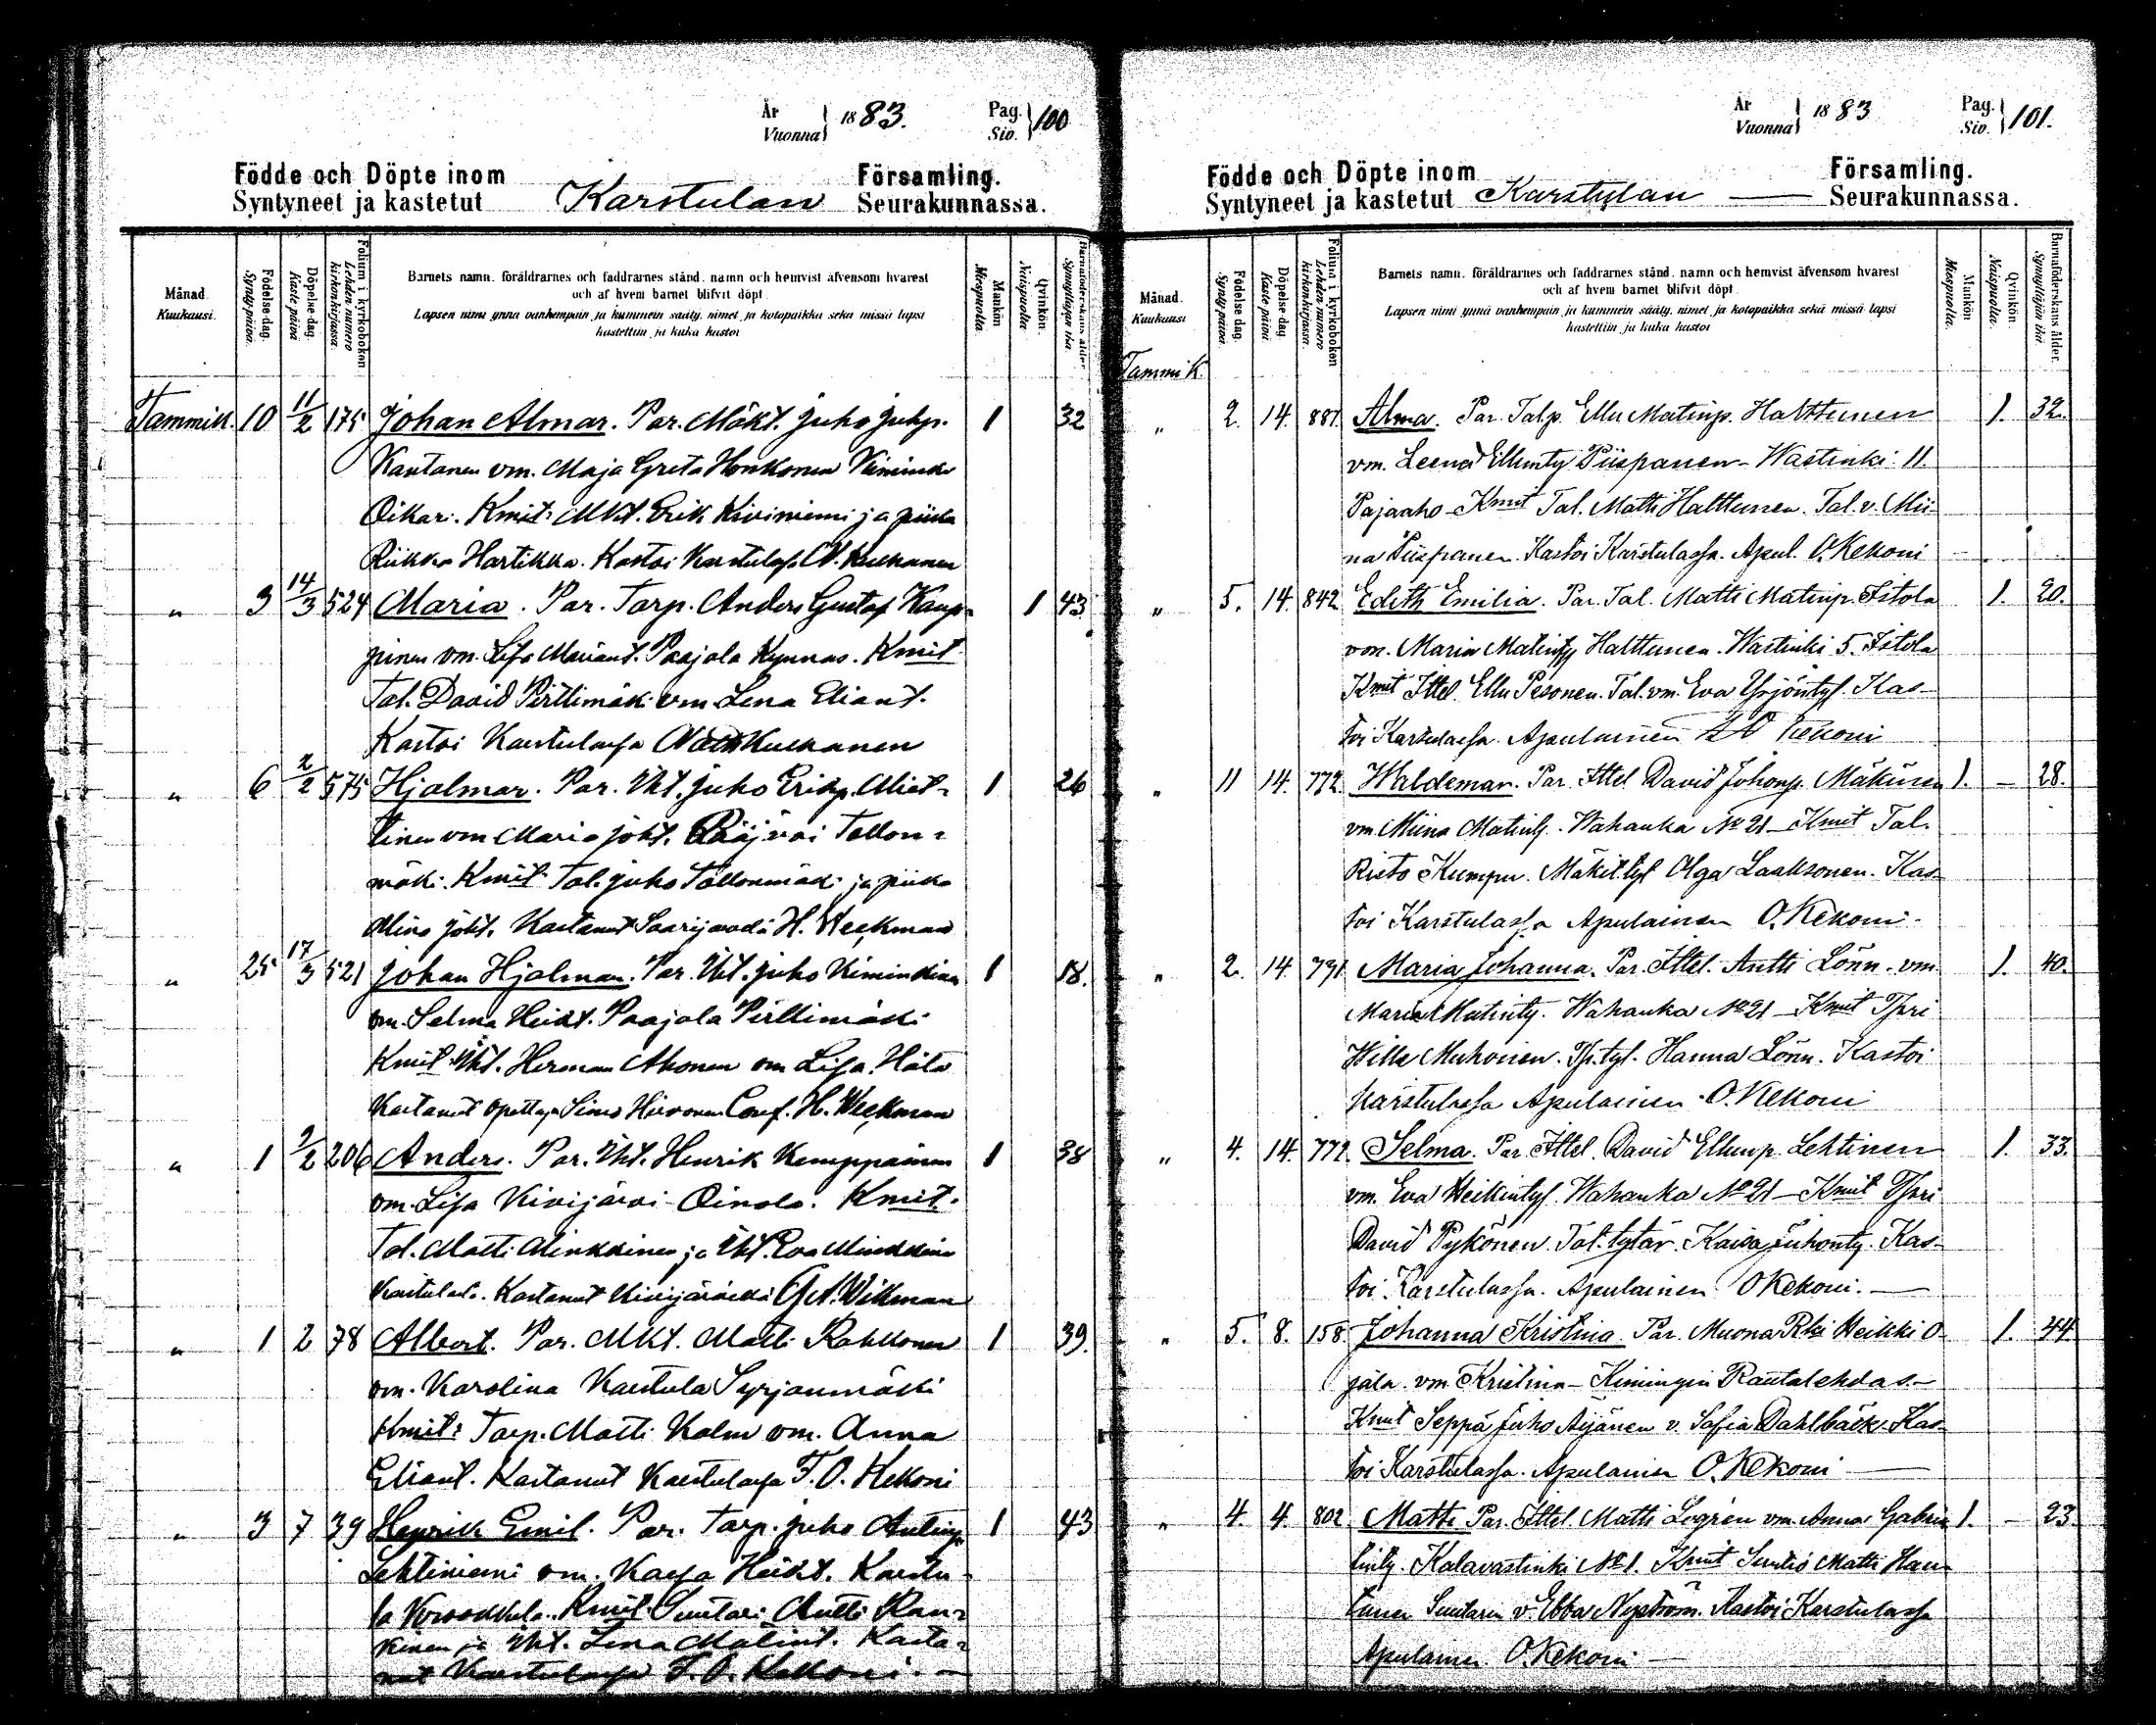 År
Vuonna
1883.
Pag.
Siv.
100
Födde och Döpte inom
Syntyneet ja kastetut
Karstulan
Församling.
Seurakunnassa.
Månad.
Kuukausi.
Födelse-dag.
Syntypäivä.
Döpelse-dag.
Kaste päivä
Folium i kyrkoboken
Lehden numero
kirkonkirjassa.
Barnets namn, föräldrarnes och faddrarnes stånd, namn och hemvist äfvensom hvarest
och af hvem barnet blifvit döpt
Lapsen nimi ynnä vanhempain ja kummein sääty, nimet ja kotopaikka sekä missä lapsi
kastettiin ja kuka kastoi
Mankön
Miespuolia.
Qvinkön.
Naispuolia.
Barnaföderskans ålder
Synnyttäjän ikä.
Tammik. 10 11/2 175 Johan Almar. Par. Mäkt. Juho Juhp. 1 32
Kautanen vm. Maja Greta Honkonen Kiminki
Oikari. Kmit: Mkt. Erik Kiviniemi ja piika
Riikka Hartikka. Kastoi Karstulassa
" 3 14/3 524 Maria. Par. Torp. Anders Gustaf Kaup- 1 43
pinen vm. Lisa Mariant. Paajala Kynnas. Kmit
Tal. David Pirttimäki vm. Lena Eliant.
Kastoi Karstulassa
" 6 2/2 575 Hjalmar. Par. Iht. Juho Erikp. Miet- 1 26
tinen vm Maria Joht. Pääjärvi Tollon-
mäki. Kmit Tal. Juho Tollonmäki ja piika
Mina Joht. Kastanut Saarijärvellä H. Weckman
" 25 17/3 521 Johan Hjalmar. Par. Iht. Juho Kiminkinen 1 18.
vm. Selma Heikt. Paajala Pirttimäki
Kmit Iht. Herman Ahonen vm Lisa Häto
Kastanut opettaja Simo Hirvonen Conf. H. Weckman
" 1 2/2 206 Anders. Par. Iht. Henrik Kemppainen 1 38
vm. Lisa Kivijärvi Oinola. Kmit.
Tal. Matti Minkkinen ja Iht. Eva Minkkinen
Karstulasta. Kastanut Kivijärvellä Wikman
" 1 2 78 Albert. Par. Mkt. Matti Rahkonen 1 39.
vm. Karolina Karstula Syrjänmäki
Kmit: Torp. Matti Kalm vm. Anna
Eliant. Kastanut Karstulassa F. O. Kekoni
" 3 7 39 Henrik Emil. Par. Torp. Juho Antinp. 1 43
Lehtiniemi vm. Kaisa Heikt. Karstu-
la Kmit Suutari Antti Ran-
kinen ja Iht. Lena Matint. Kasta-
nut Karstulassa F. O. Kekoni.
År
Vuonna
1883
Pag.
Siv.
101.
Födde och Döpte inom
Syntyneet ja kastetut
Karstulan
Församling.
Seurakunnassa.
Månad.
Kuukausi
Födelse dag.
Syntypäivä.
Döpelse-dag
Kaste päivä
Folium i kyrkoboken
Lehden numero
kirkonkirjassa.
Barnets namn, föräldrarnes och faddrarnes stånd, namn och hemvist äfvensom hvarest
och af hvem barnet blifvit döpt
Lapsen nimi ynnä vanhempain ja kummein sääty, nimet ja kotopaikka sekä missä lapsi
kastettiin ja kuka kastoi
Mankön
Miespuolia.
Qvinkön.
Naispuolia.
Barnaföderskans ålder.
Synnyttäjän ikä
Tammik.
" 2. 14. 881 Alma. Par. Talp. Ellu Matinp. Halttunen 1. 32.
vm. Leena Ellunty Piispanen - Wastinki 11.
Pajaaho - Kmit Tal. Matti Halttunen. Tal. v. Mii-
na Piispanen. Kastoi Karstulassa. Apul. O. Kekoni
" 5. 14. 842 Edith Emilia. Par. Tal. Matti Matinp. Istola 1. 20.
vm. Maria Matinty Halttunen. Wastinki 5. Istola
Kmit Ittel. Ellu Pesonen. Tal. vm. Eva Yrjönty. Kas-
toi Karstulassa. Apulainen Kekoni
" 11 14. 772. Waldemar. Par. Ittel David Johanp. Mäkinen 1. - 28.
vm Miina Matinty. Wahanka No 21 - Kmit Tal.
Risto Kumpu. Mäkit.tyt Olga Laaksonen. Kas-
toi Karstulassa Apulainen O. Kekoni.
" 2. 14. 791 Maria Johanna. Par. Ittel. Antti Lönn. vm. 1. 40.
Maria Matinty. Wahanka No 21 - Kmit Tpri
Wille Muhonen. Tp.tyt. Hanna Lönn. Kastoi
Karstulassa Apulainen. O. Kekoni
" 4. 14. 772. Selma. Par. Ittel. David Ellunp. Lehtinen 1. 33.
vm. Eva Heikinty. Wahanka No 21 - Kmit Tpri
David Pykönen. Tal. tytär. Kaisa Juhonty. Kas-
toi Karstulassa. Apulainen O Kekoni. -
" 5. 8. 158 Johanna Kristina Par. Muona Rki Heikki O- 1. 44
jala. vm Kristina - Kimingin Rautatehdas. -
Kmit Seppä Juho Äijänen v. Sofia Dahlbäck. Kas-
toi Karstulassa. Apulainen O. Kekoni -
" 4. 4. 802 Matti Par. Ittel. Matti Logrén vm. Anna Gabrie 1. - 23.
linty. Kalavastinki No 1. Kmit Suntio Matti Hau-
tanen Suutarin v. Ebba Nyström. Kastoi Karstulassa
Apulainen. O. Kekoni -